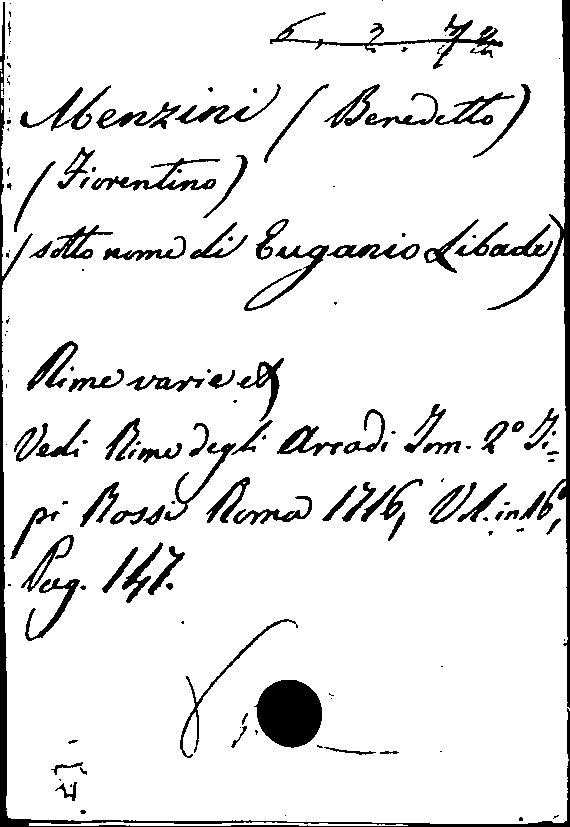 6. 2. 72
Menzini (Benedetto)
(Fiorentino)
(sotto nome di Euganio Libade)
Rime varie
Vedi Rime degli Arcadi Tom. 2º Ti=
pi Rossi Roma 1716, Vol. in 16º,
Pag. 147.